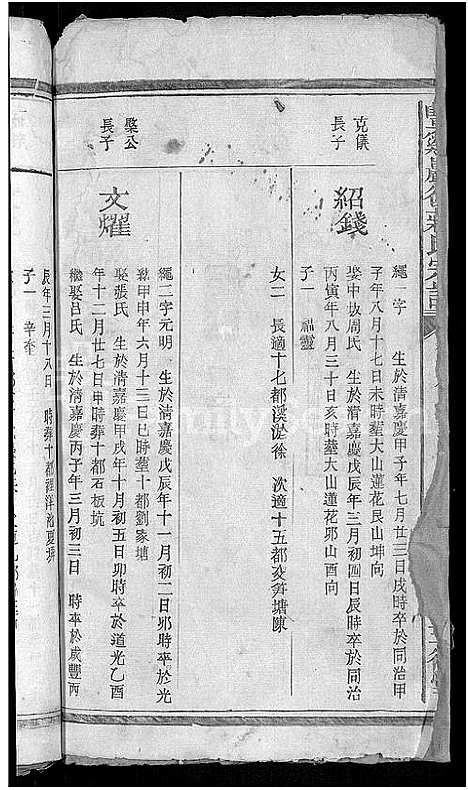 克儀
長子
紹錢
繩 字 生於清嘉慶甲子年七月廿三日戌時卒於同治甲
子年八月十七日未時塟大山蓮花艮山坤向
娶中坂周氏 生於清嘉慶戊辰年三月初四日辰時卒於同治
丙寅年八月三十日亥時塟大山蓮花夘山酉向
子一 福靈
女二 長適十七都溪淤徐 次適十五都茭笋塘陳
槩公
長子
文燿
繩二字元明 生於清嘉慶戊辰年十一月初二日夘時卒於光
緒甲申年六月十三日巳時塟十都劉家塘
娶張氏 生於清嘉慶甲戌年十月初五日卯時卒於道光乙酉
年十二月廿七日申時葬十都石板坑
繼娶呂氏 生於清嘉慶丙子年三月初三日 時卒於咸豐丙
辰年三月十八日 時葬十都裡洋
子一 辛牽